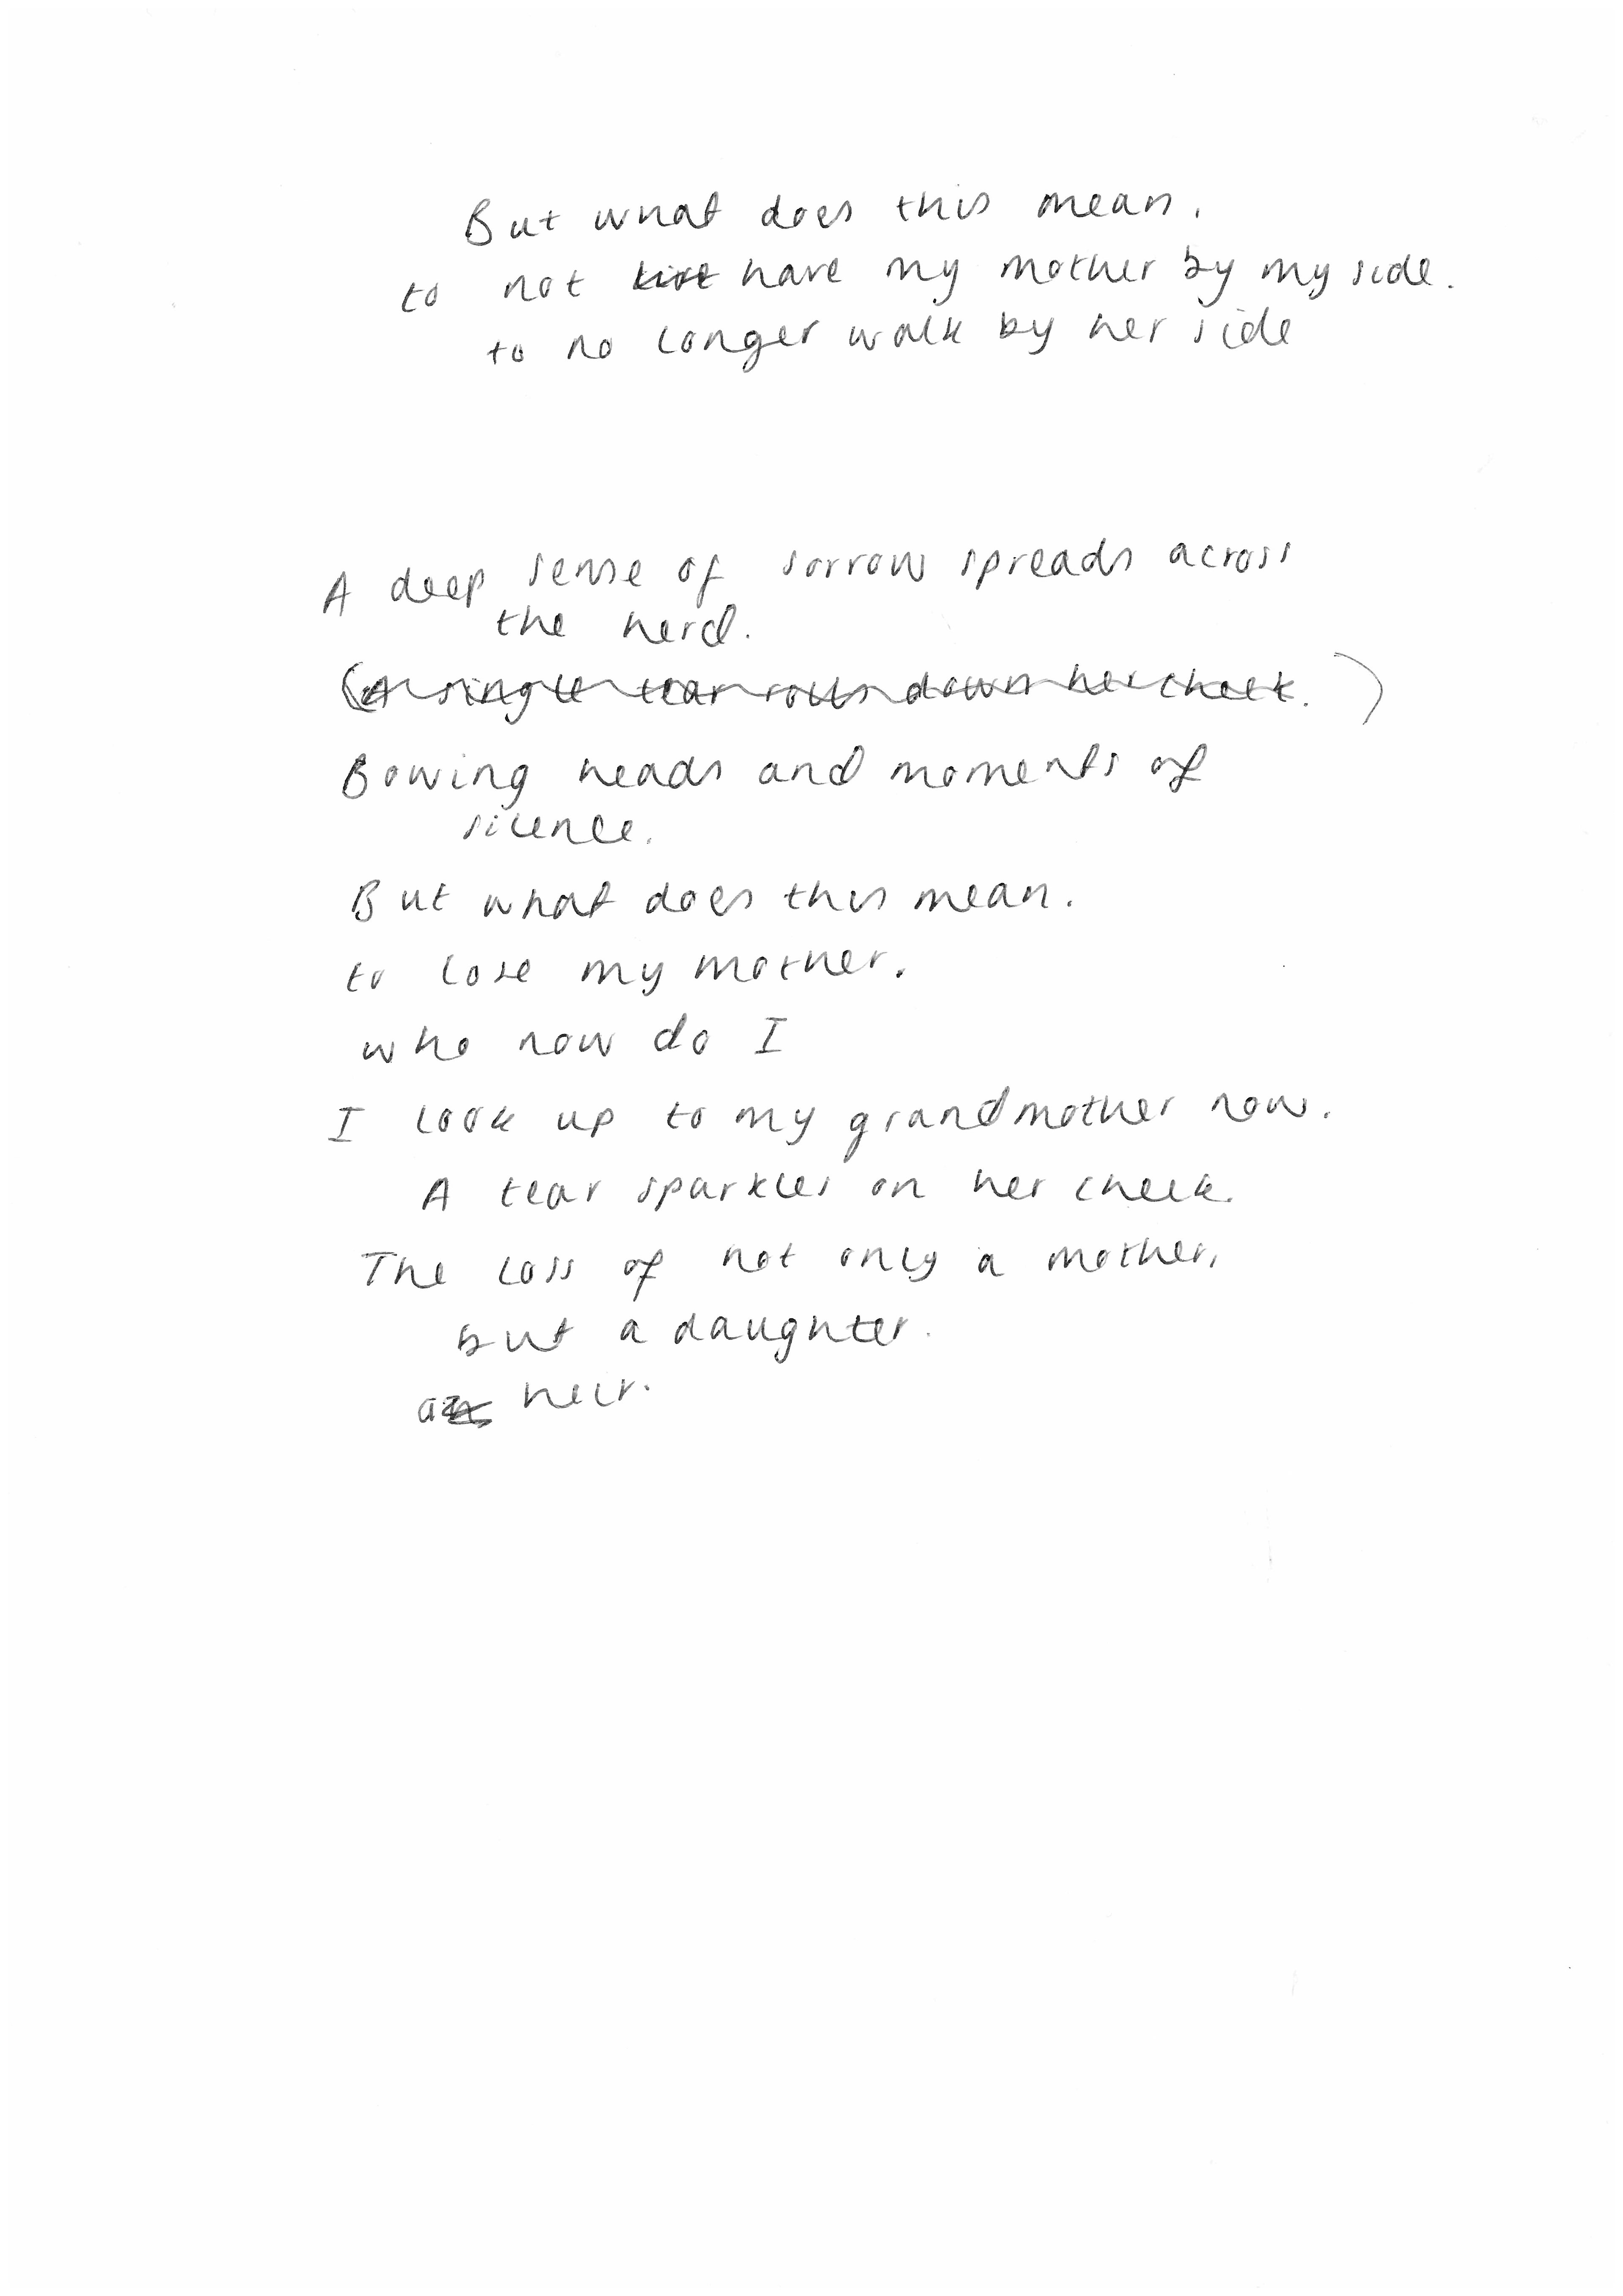 But what does this mean,
to not have my mother by my side.
to no longer walk by her side
A deep sense of sorrow spreads across
the herd.
(A single tear rolls down her cheek.)
Bowing heads and moments of
silence.
But what does this mean.
to lose my mother.
who now do I
I look up to my grandmother now.
A tear sparkles on her cheek.
The loss of not only a mother,
but a daughter.
a heir.